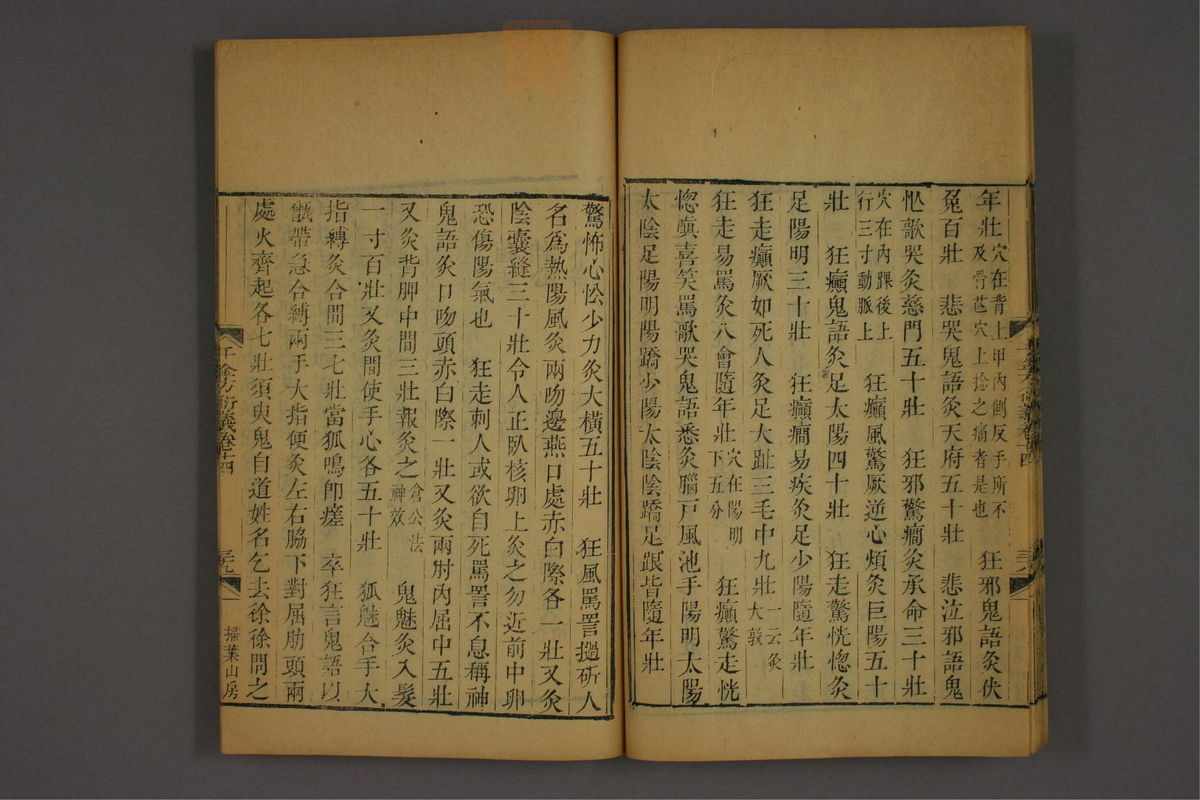 年壯穴在背上甲內側反手所不及骨芭穴上捻之痛者是也　狂邪鬼語灸伏
兔百壯　悲哭鬼語灸天府五十壯　悲泣邪語鬼
忙歌哭灸慈門五十壯　狂邪驚癇灸承命三十壯
穴在內踝後上行三寸動脈上　狂癲風驚厥逆心煩灸巨陽五十
壯　狂癲鬼語灸足太陽四十壯　狂走驚恍惚灸
足陽明三十壯　狂癲癇易疾灸足少陽隨年壯
狂走癲厥如死人灸足大趾三毛中九壯一云灸大敦
狂走易罵灸八會隨年壯穴在陽明下五分　狂癲驚走恍
惚瘨喜笑罵歌哭鬼語悉灸腦戸風池手陽明太陽
太陰足陽明陽蹻少陽太陰陰蹻足跟皆隨年壯
千金方衍義卷十四
三八
驚怖心忪少力灸大橫五十壯　狂風罵詈撾斫人
名爲熱陽風灸兩吻邊燕口處赤白際各一壯又灸
陰囊縫三十壯令人正臥核卵上灸之勿近前中卵
恐傷陽氣也　狂走刺人或欲自死罵詈不息稱神
鬼語灸口吻頭赤白際一壯又灸兩肘內屈中五壯
又灸背胛中間三壯報灸之倉公法神效　鬼魅灸入髮
一寸百壯又灸間使手心各五十壯　狐魅合手大
指縛灸合間三七壯當狐鳴卽瘥　卒狂言鬼語以
甑帶急合縛兩手大指便灸左右脇下對屈肋頭兩
處火齊起各七壯須臾鬼自道姓名乞去徐徐問之
千金方衍義卷十四
三九
掃葉山房